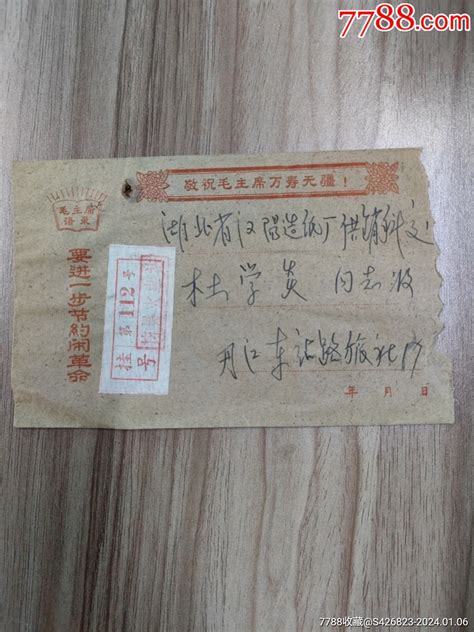 7788.com
敬祝毛主席万寿无疆！
毛主席
语录
要进一步节约闹革命
挂 第112号
号
湖北省汉阳造纸厂供销科交
杜学炎 同志收
丹江东站路旅社
年 月 日
7788收藏@S426823-2024.01.06